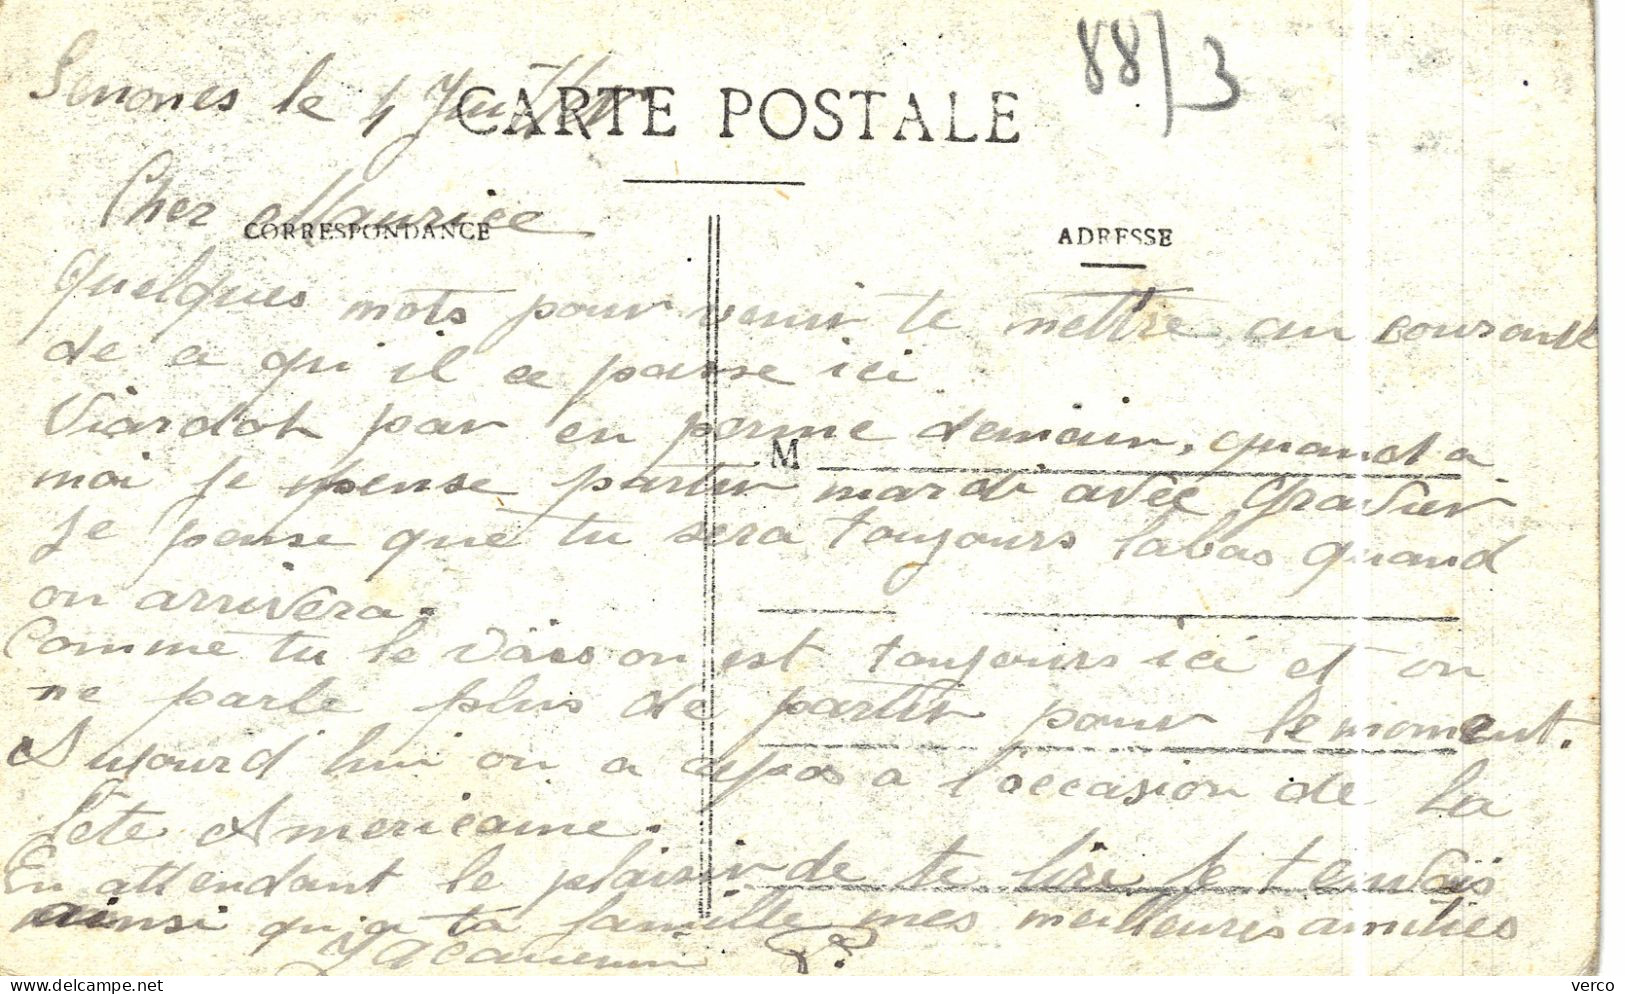 88/3
Senones le 4 Juillet
CARTE POSTALE
Cher Maurice
CORRESPONDANCE
ADRESSE
Quelques mots pour venir te mettre au courant
de a qu'il ce passe ici
Viardot par en perme demain, quand a
M
moi je pense partir mardi avec Gravier
je pense que tu sera toujours labas quand
on arrivera.
Comme tu le vois on est toujours ici et on
ne parle plus de partir pour le moment.
Aujourd'hui on a repos a l'occasion de la
fête Américaine.
En attendant le plaisir de te lire je t'envoi
ainsi qu'a ta famille mes meilleures amities
verco